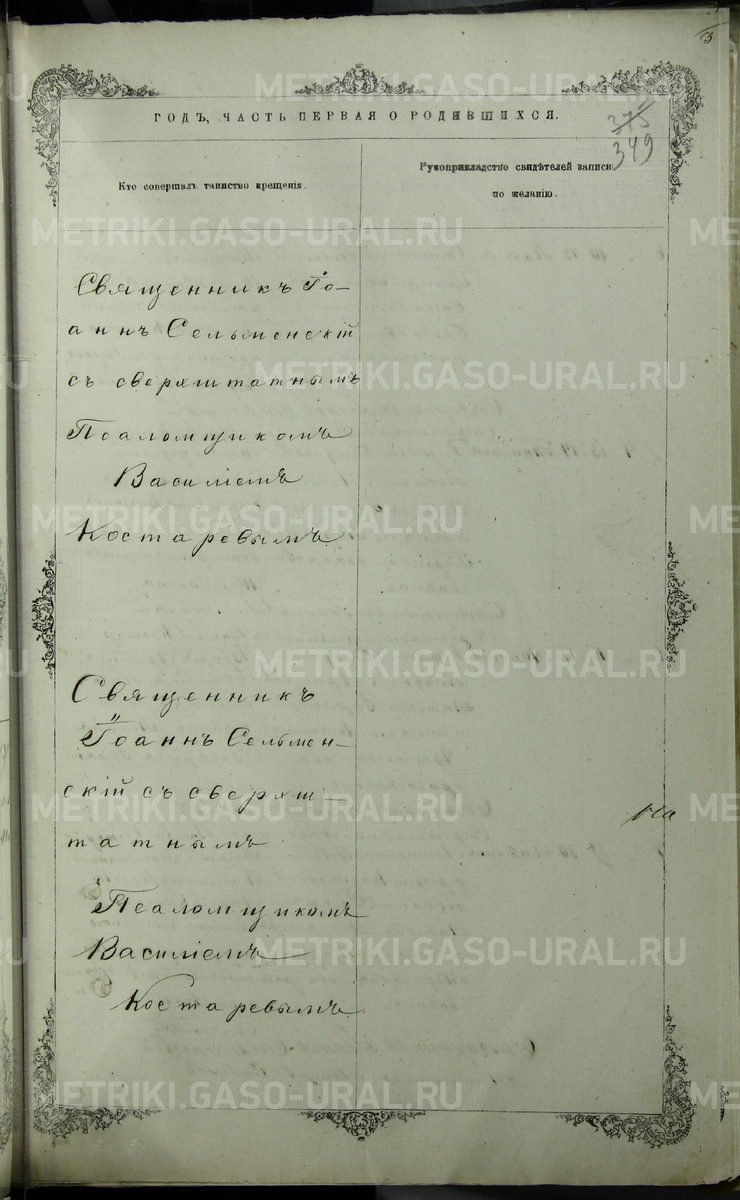 3
ГОДЪ, ЧАСТЬ ПЕРВАЯ О РОДИВШИХСЯ.
375
349
Кто совершалъ таинство крещенія.
Рукоприкладство свидѣтелей записи
по желанію.
Священникъ Іо-
аннъ Сельменскій
съ сверхштатнымъ
Псаломщикомъ
Василіемъ
Костаревымъ
Священникъ
Іоаннъ Сельмен-
скій съ сверхш-
татнымъ
Псаломщикомъ
Василіемъ
Костаревымъ
METRIKI.GASO-URAL.RU